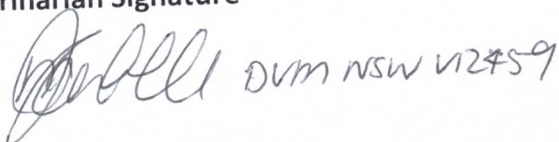 rinarian Signature
DVM NSW V12459